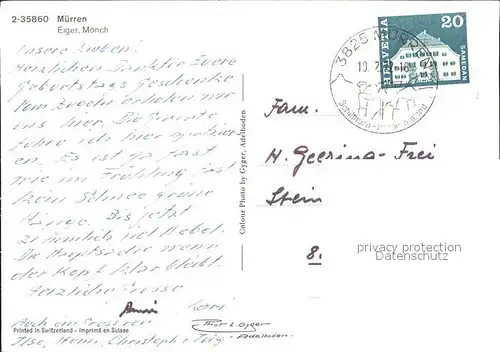 2-35860 Mürren
Eiger, Mönch
Unsere Lieben!
Herzlichen Dank für Euere
Geburtstags Geschenke
Vom Zügeln erholen wir
uns hier. Die
fahre ich hier spatzieren
en. Es ist ja fast
wie im Frühling fast
kein Schnee grüne
Hänge. Bis jetzt
ziemlich viel Nebel.
Die Hauptsache wenn
der Kopf klar bleibt.
Herzliche Grüsse
Kari
Auch ein
Ilse, Henri, Christoph + Jürg
Printed in Switzerland - Imprimé en Suisse
Colour Photo by Gyger, Adelboden
3825 MÜRREN
Schilthorn
HELVETIA
20
SAMEDAN
Fam.
H. Geerina-Frei
Stein
8.
privacy protection
Datenschutz
Phot E. Gyger
Adelboden